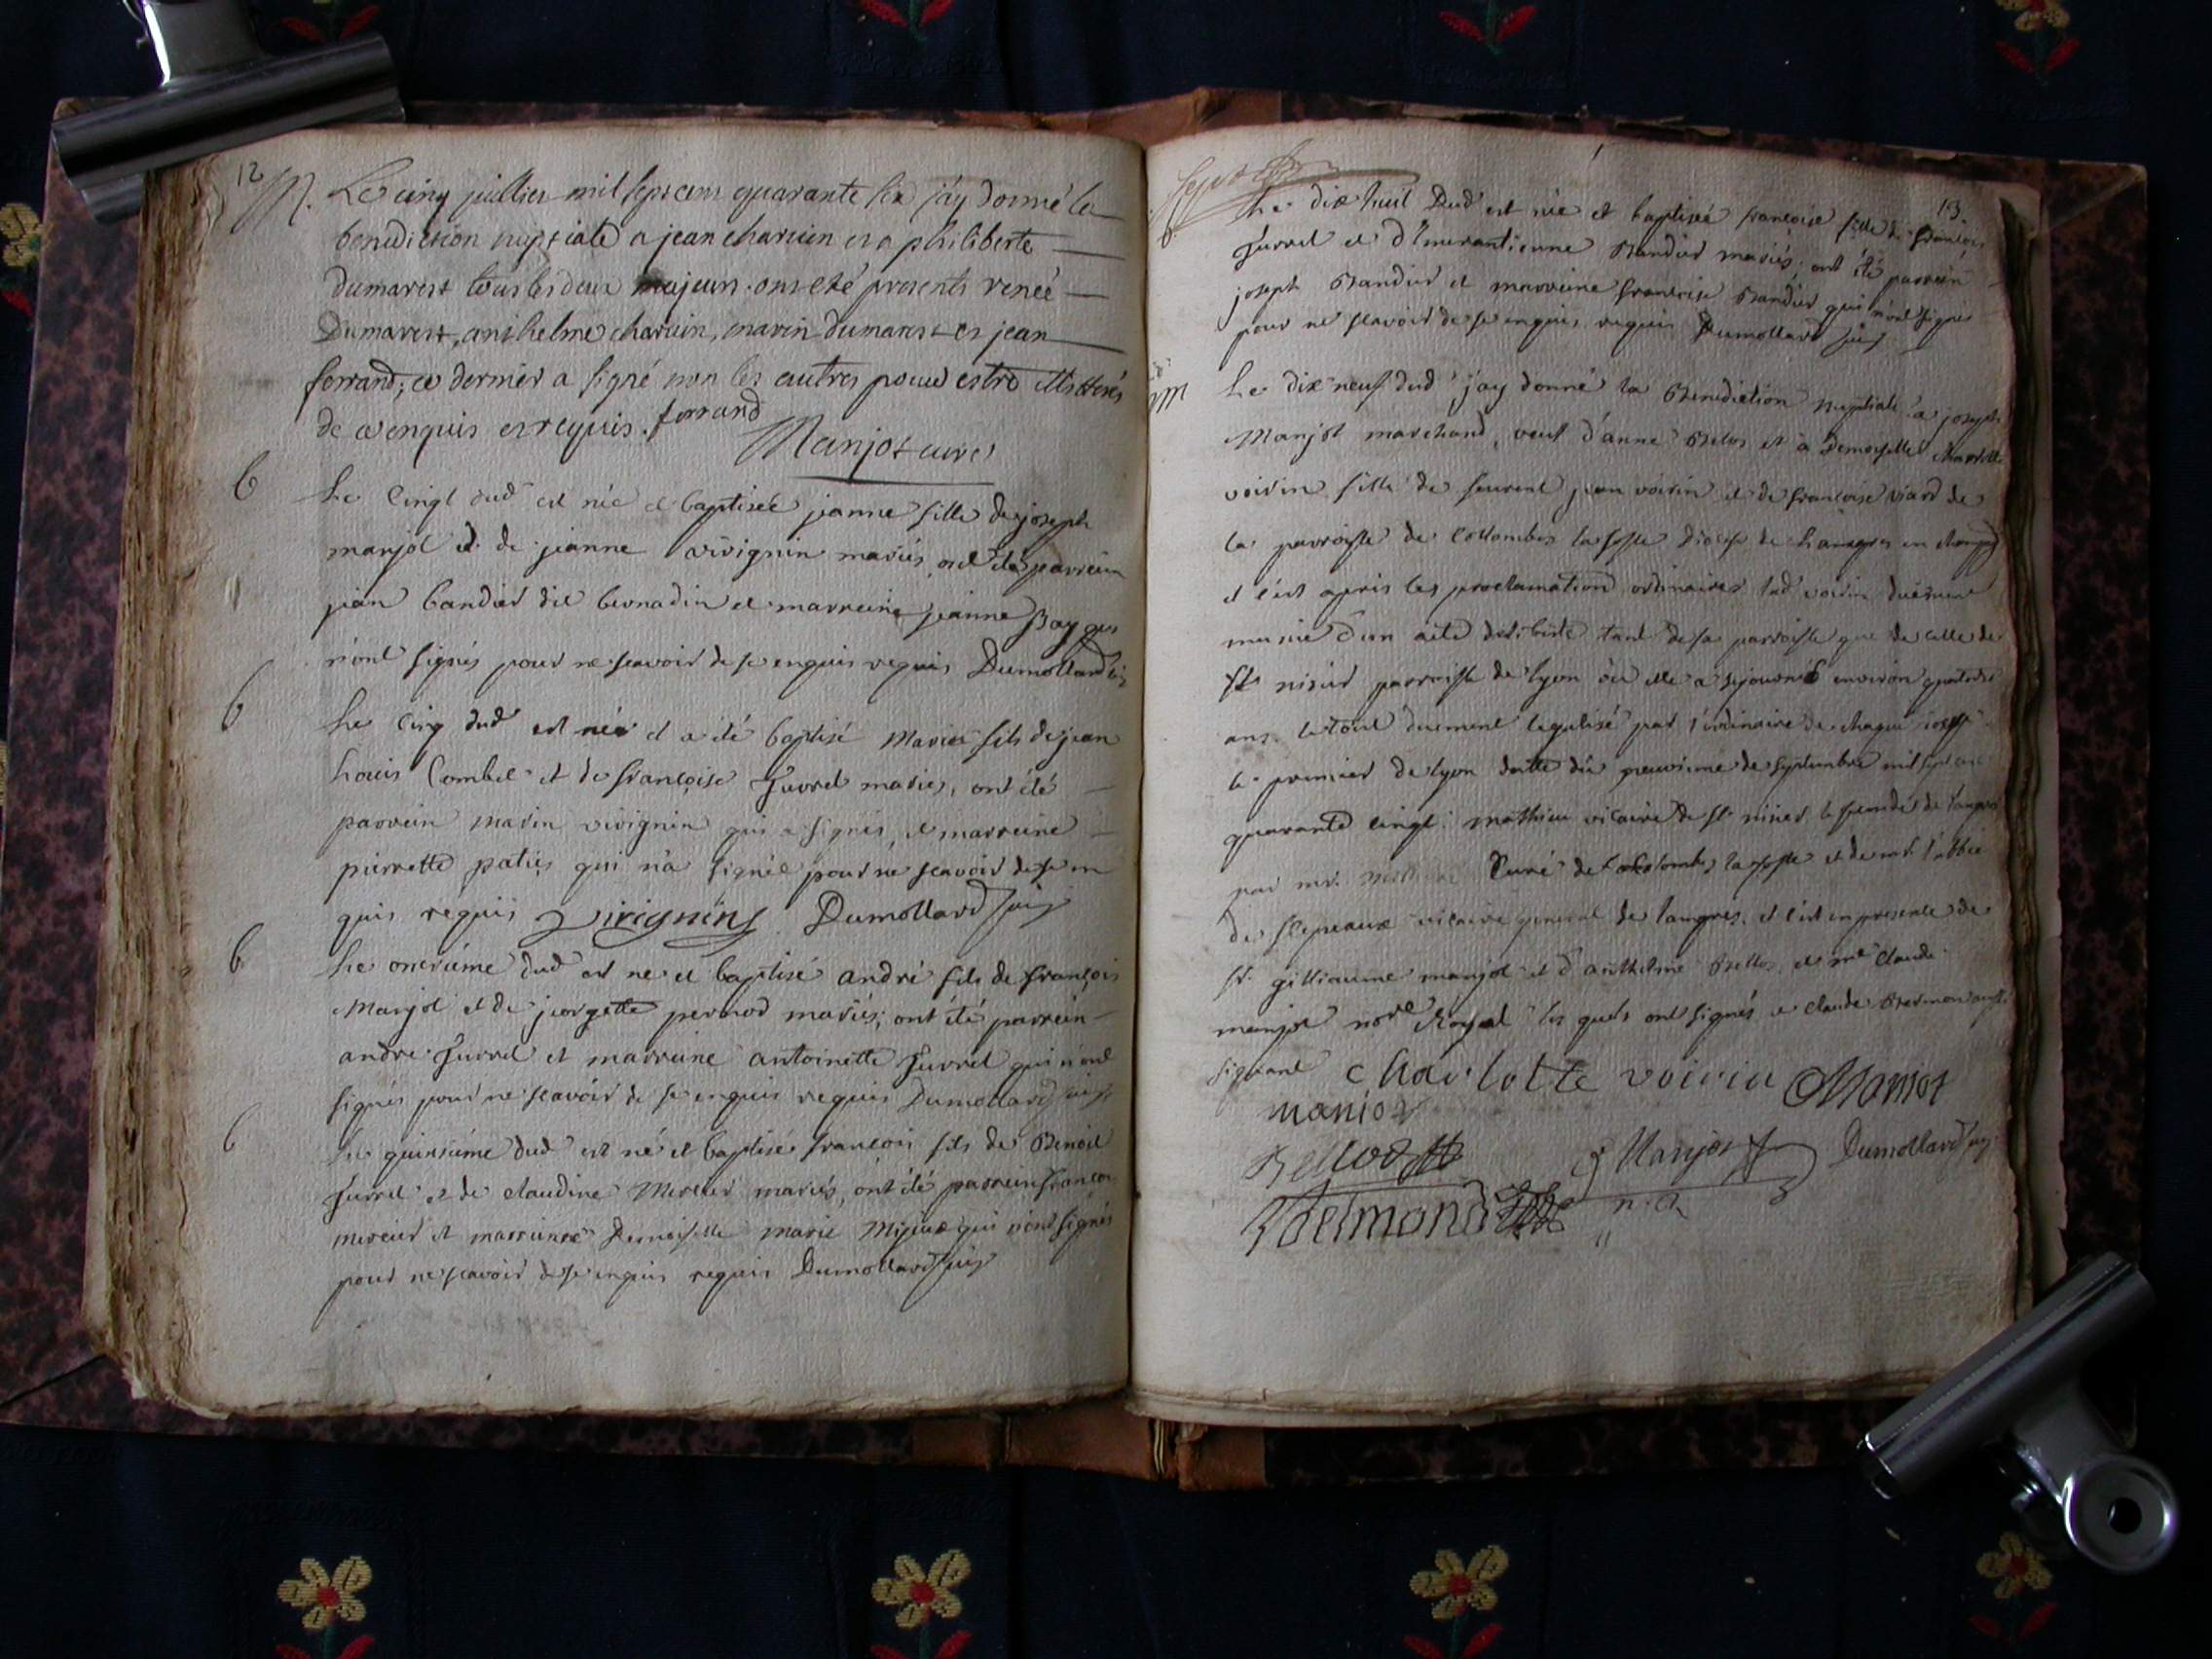 12
M. Le cinq juillier mil sept cens quarante six j'ay donné la
benediction nuptiale a jean charvin et a philiberte
dumarest tous les deux majeurs. ont eté presents renée
Dumarest, anthelme charvin, marin dumarest et jean
ferrand; ce dernier a signé non les autres pour estre illitterés
de ce enquis et requis. ferrand
Manjot curé
b Le cinq dud est née et baptisée jeanne fille de joseph
manjot et de jeanne vivignin mariés, ont été parrein
jean bandier dit bernadin et marreine jeanne Bay qui
n'ont signés pour ne scavoir de ce enquis requis Dumollard vic
b Le cinq dud est né et a été baptisé Marin fils de jean
Louis Combet et de françoise Jurret mariés, ont été
parrein marin vivignin qui a signés et marreine
pierrette patiés qui n'a signée pour ne scavoir de ce en
quis requis Virignin Dumollard vic
b Le onzieme dud est né et baptisé andré fils de françois
Manjot et de jeorgette pernod mariés; ont été parrein
andre Jurret et marreine antoinette Jurret qui n'ont
signés pour ne scavoir de ce enquis requis Dumollard vic
b Le quinsiéme dud est né et baptisé francois fils de Benoit
Jurret et de claudine Mercier mariés, ont été parrein françois
mercier et marreine Demoiselle marie Mijeux qui n'ont signés
pour ne scavoir de ce enquis requis Dumollard vic
13.
b. Le dix huit Dud est née et baptiseé francoise fille de françois
Jurret et d'Emerantienne Bandier mariés; ont été parrein
joseph Bandier et marreine francoise Bandier qui n'ont signé
pour ne scavoir de ce enquis requis Dumollard vic
M Le dix neuf dud j'ay donné la Benediction Nuptiale a joseph
Manjot marchand, veuf d'anne Bellos et a Demoiselle charlotte
voisin fille de jean voisin et de francoise viard de
la parroisse de Collombes la fosse Diocese de Langres en
et c'est apres les proclamations ordinaires lad voisin duëment
munie d'un acte de liberté tant de sa parroisse que de celle de
St nisier parroisse de lyon où elle a sejourné environ quatorze
ans le tout duement legalisé par l'ordinaire de chaque
le premier de lyon datte du neuvieme de septembre mil sept cent
quarante cinq. mathieu vicaire de st nisier le second de Langres
par mr. Curé de Collombes la fosse et de mr. l'abbé
de vicaire general de langres. et c'est en presence de
sr. gilliaume manjot et d'anthelme Bellos, et me claude
manjot nore Royal les quels ont signés et claude Belmond aussi
signant charlotte voivin Manjot
manjot
Bellod Manjot Dumollard vic
Belmond n.r.